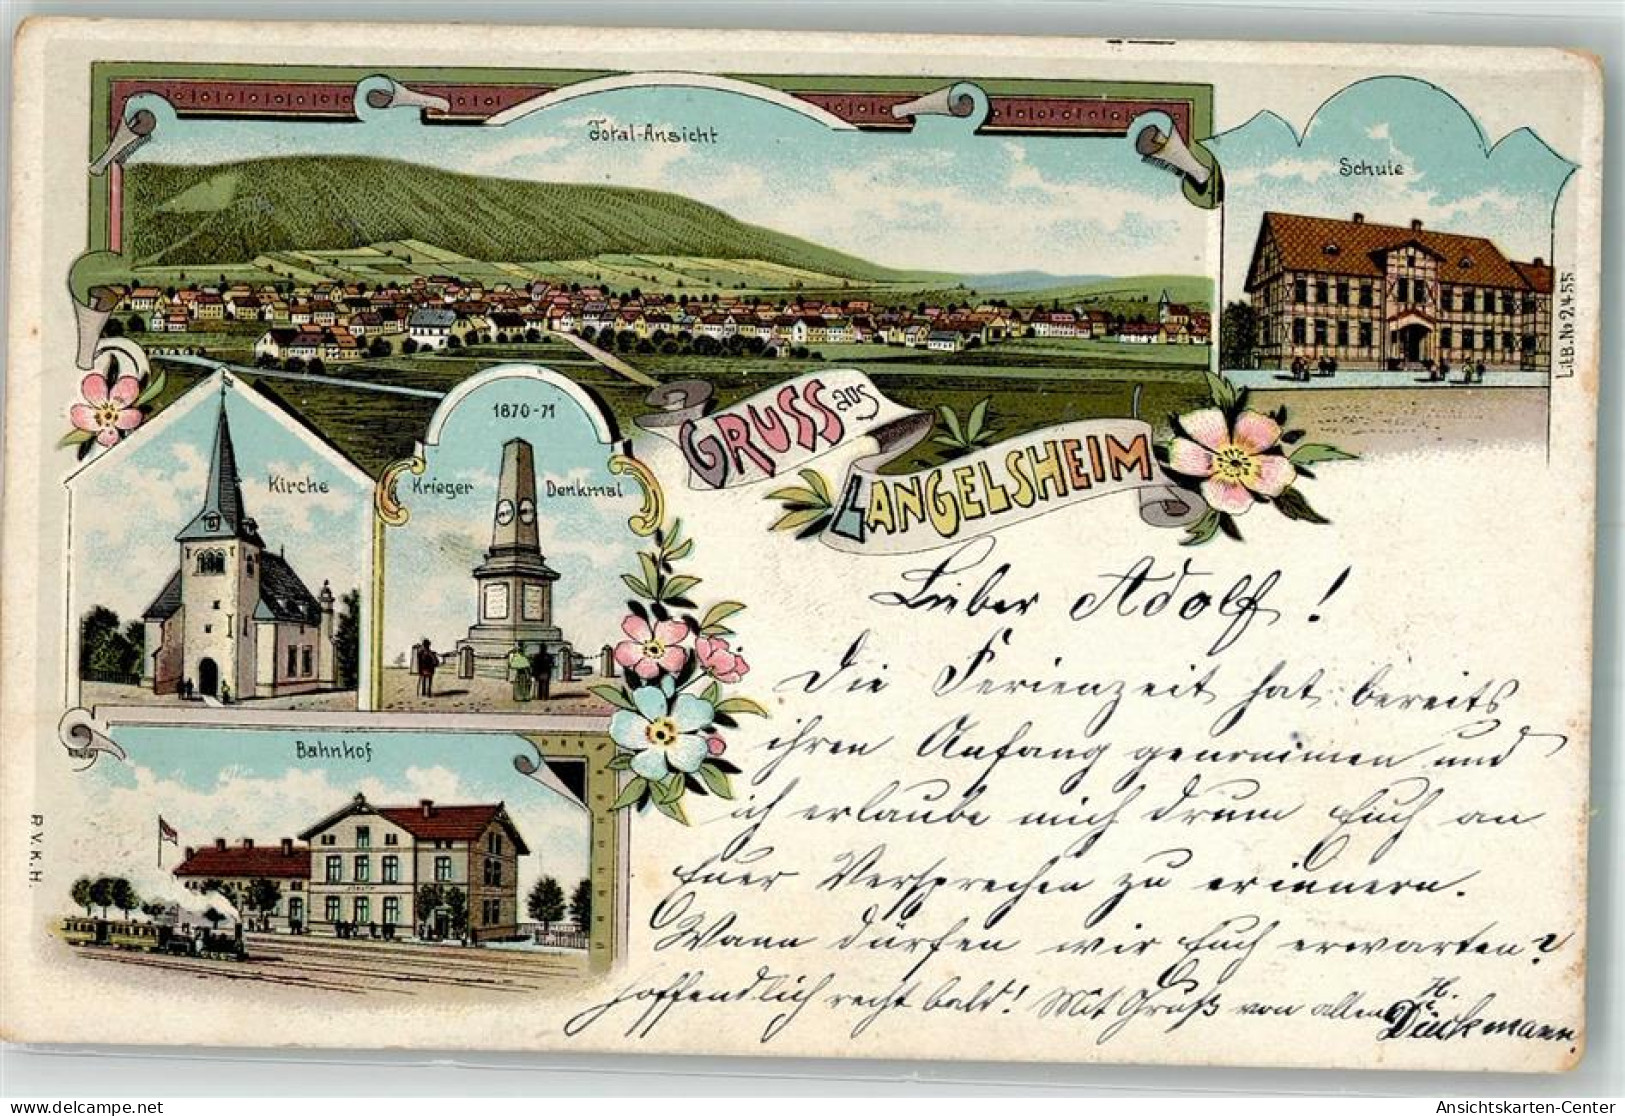 Total-Ansicht
Schule
Lit.B.No 2,455.
1870-71
Krieger Denkmal
Kirche
GRUSS aus
LANGELSHEIM
Bahnhof
P.V.K.H.
Lieber Adolf!
Die Ferienzeit hat bereits
ihren Anfang genommen und
ich erlaube mich drum Euch an
Euer Versprechen zu erinnern.
Wann dürfen wir Euch erwarten?
hoffendlich recht bald! Mit Gruß von allen H.
Dückmann.
www.ansichtskarten-center.de
Ansichtskarten-Center